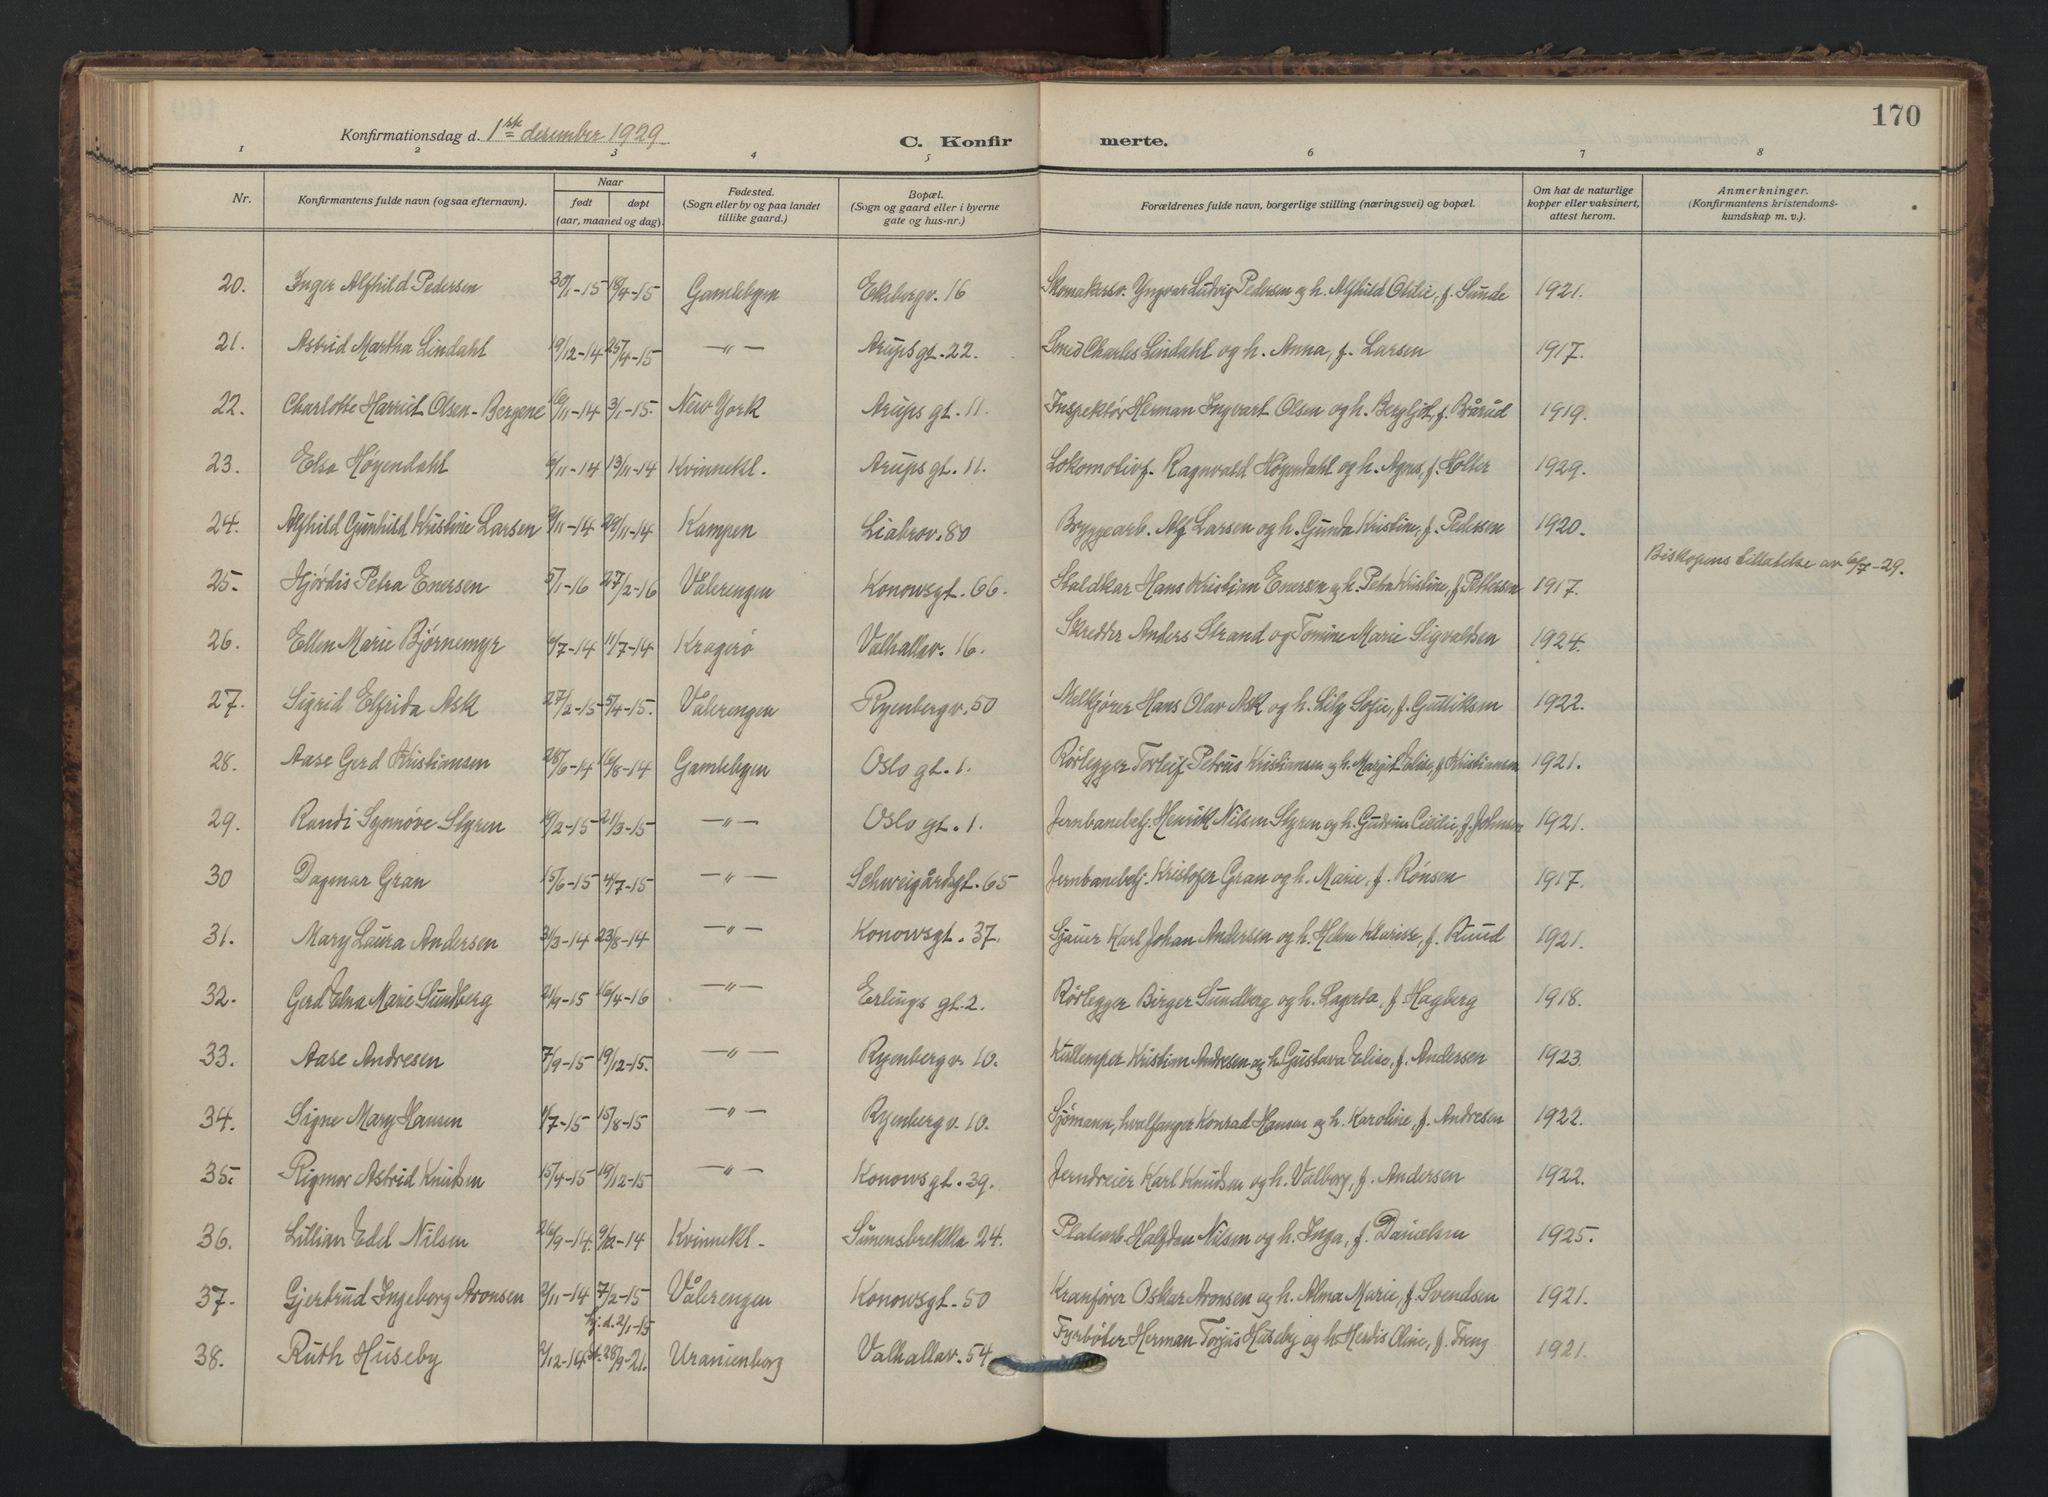 170
Konfirmationsdag d. 1ste desember 1929.
C. Konfirmerte.
1 2 3 4 5 6 7 8
Nr. | Konfirmantens fulde navn (ogsaa efternavn). | Naar født døpt (aar, maaned og dag). | Fødested. (Sogn eller by og paa landet tillike gaard.) | Bopæl. (Sogn og gaard eller i byerne gate og hus-nr.) | Forældrenes fulde navn, borgerlige stilling (næringsvei) og bopæl. | Om hat de naturlige kopper eller vaksinert, attest herom. | Anmerkninger. (Konfirmantens kristendoms-kundskap m. v.).
20. Inger Alfhild Pedersen 30/1-15 18/4-15 Gamlebyen Ekebergv. 16 Skomakersv. Yngvar Ludvig Pedersen og h. Alfhild Otilie, f. Sunde 1921.
21. Astrid Martha Lindahl 19/12-14 25/4-15 -"- Arupsgt. 22. Smed Charles Lindahl og h. Anna, f. Larsen 1917.
22. Charlotte Harriet Olsen-Bergene 16/11-14 3/1-15. New York Arups gt. 11. Inspektør Herman Ingvart Olsen og h. Bergljot, f. Brårud 1919.
23. Elsa Høyendahl 6/11-14 13/11-14 Kvinnekl. Arups gt. 11. Lokomotivf. Ragnvald Høyendahl og h. Agnes, f. Holter 1929.
24. Alfhild Gunhild Kristine Larsen 9/11-14 29/11-14 Kampen Liabrov. 80 Bryggearb. Alf Larsen og h. Gunda Kristine, f. Pedersen 1920.
25. Hjørdis Petra Enersen 5/1-16 27/2-16 Vålerengen Konowsgt. 66. Staldkar Hans Kristian Enersen og h. Petra Kristine, f. Pettersen 1917. Biskopens tillatelse av 6/7-29.
26. Ellen Marie Bjørnemyr 6/7-14 11/7-14 Kragerø Valhallav. 16. Skredder Anders Strand og Tomine Marie Sigvaldsen 1924.
27. Sigrid Elfrida Ask 27/2-15 5/4-15. Vålerengen Ryenbergv. 50 Melkjører Hans Olav Ask og h. Lily Sofie, f. Gulliksen 1922.
28. Aase Gerd Kristiansen 28/6-14 16/8-14 Gamlebyen Oslo gt. 1. Rørlegger Torleif Petrus Kristiansen og h. Margit Elise, f. Kristiansen 1921.
29. Randi Synnøve Styren 19/2-15 21/3-15 -"- Oslo gt. 1. Jernbanebetj. Henrik Nilsen Styren og h. Gudrun Cecilie, f. Johnsen 1921.
30 Dagmar Gran 15/6-15 4/7-15 -"- Schweigårdsgt. 65 Jernbanebetj. Kristofer Gran og h. Marie, f. Rønsen 1917.
31. Mary Laura Andersen 31/3-14 23/8-14 -"- Konowsgt. 37. Sjauer Karl Johan Andersen og h. Helene Klarise, f. Ruud 1921.
32. Gerd Elna Marie Sundberg 21/9-15 16/4-16 -"- Erlings gt. 2. Rørlegger Birger Sundberg og h. Lagerta, f. Hagberg 1918.
33. Aase Andresen 7/9-15 19/12-15. -"- Ryenbergv. 10. Kullemper Kristian Andresen og h. Gustava Elise, f. Andersen 1923.
34. Signe Mary Hansen 1/7-15 15/8-15 -"- Ryenbergv. 10. Sjømann, hvalfanger Konrad Hansen og h. Karoline, f. Andresen 1922.
35. Rigmor Astrid Knudsen 15/4-15 19/12-15 -"- Konowsgt. 39. Jerndreier Karl Knudsen og h. Valborg, f. Andersen 1922.
36. Lillian Edel Nilsen 26/9-14. 9/12-14 Kvinnekl. Simensbrekka 24. Platearb. Halfdan Nilsen og h. Inga, f. Danielsen 1925.
37. Gjertrud Ingeborg Aronsen 2/11-14 7/2-15 Vålerengen Konowsgt. 50 Kranfører Oskar Aronsen og h. Alma Marie, f. Svendsen 1921.
38. Ruth Huseby 2/12-14 hj. d. 2/1-15 st. 28/9-21. Uranienborg Valhallav. 54 Fyrbøter Herman Torjus Huseby og h. Herdis Oline, f. Freng 1921.